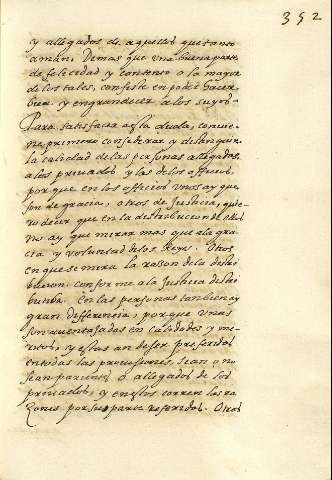 352
y allegados de aquellos que tanto
aman. Demas que vna buena parte
de felicidad y contento a la mayor
de los tales, consiste en poder hacer
bien y engrandecer a los suyos.
Para satisfacer a esta duda, convie
ne primero considerar y distinguir
la calidad de las personas allegadas
a los privados y las de los officios,
porque en los officios vnos ay que
son de gracia, otros de Justicia, quie
ro decir que en la distribucion de ellos
no ay que mirar mas que a la gra
cia y voluntad de los Reyes. Otros
en que se mira la razon de la distri
bucion conforme a la Justicia distri
butiva. En las personas tambien ay
gran differencia, porque vnas
son aventajadas en calidades y me
ritos, y estas an de ser preferidas
en todas las provissiones, sean o no
sean parientes o allegados de los
privados, y en estos corren las ra
zones por su parte referidas. Otros